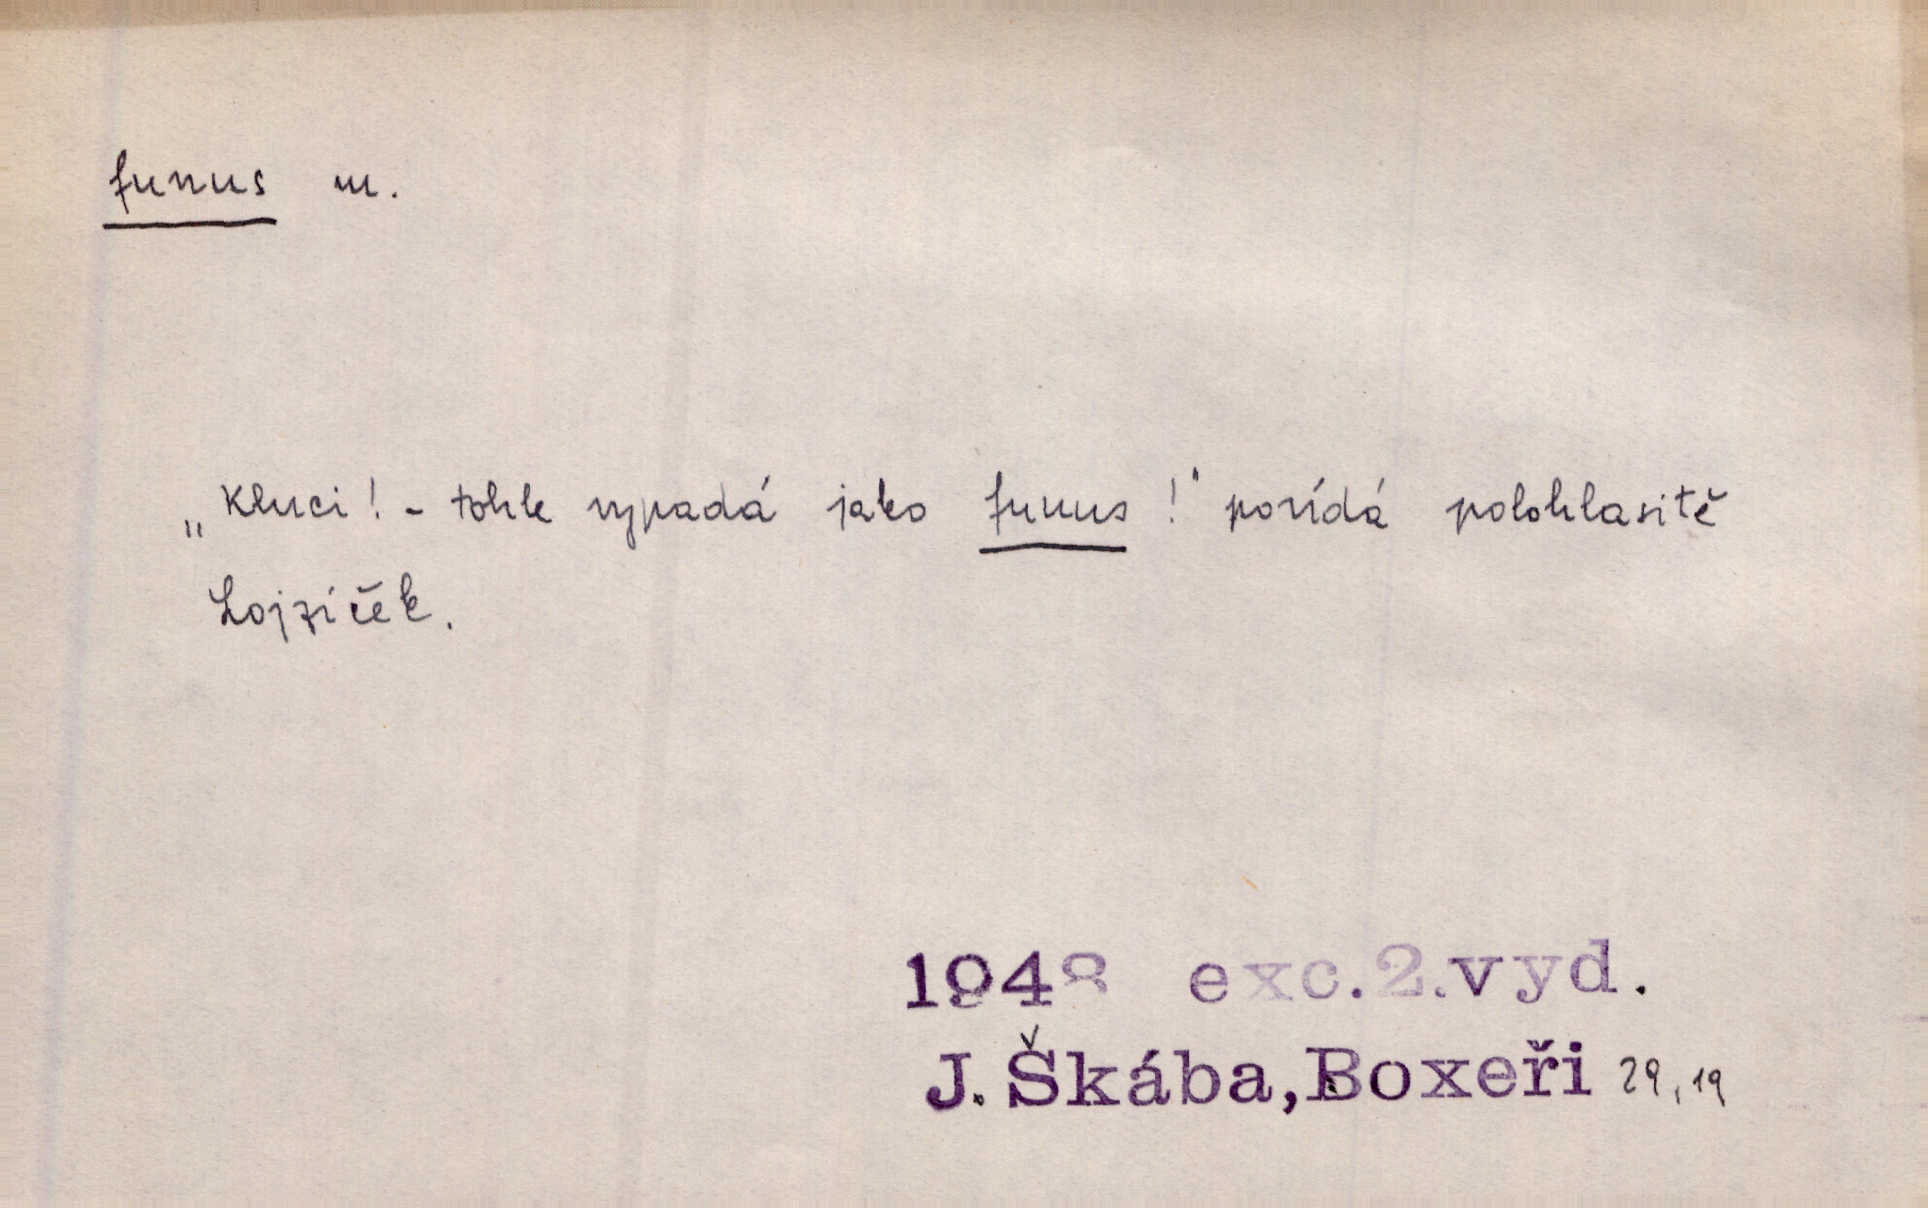 funus m.
„Kluci! - tohle vypadá jako funus!" povídá polohlasitě
Lojzíček.
1948 exc.2.vyd.
J. Škába, Boxeři 29, 19